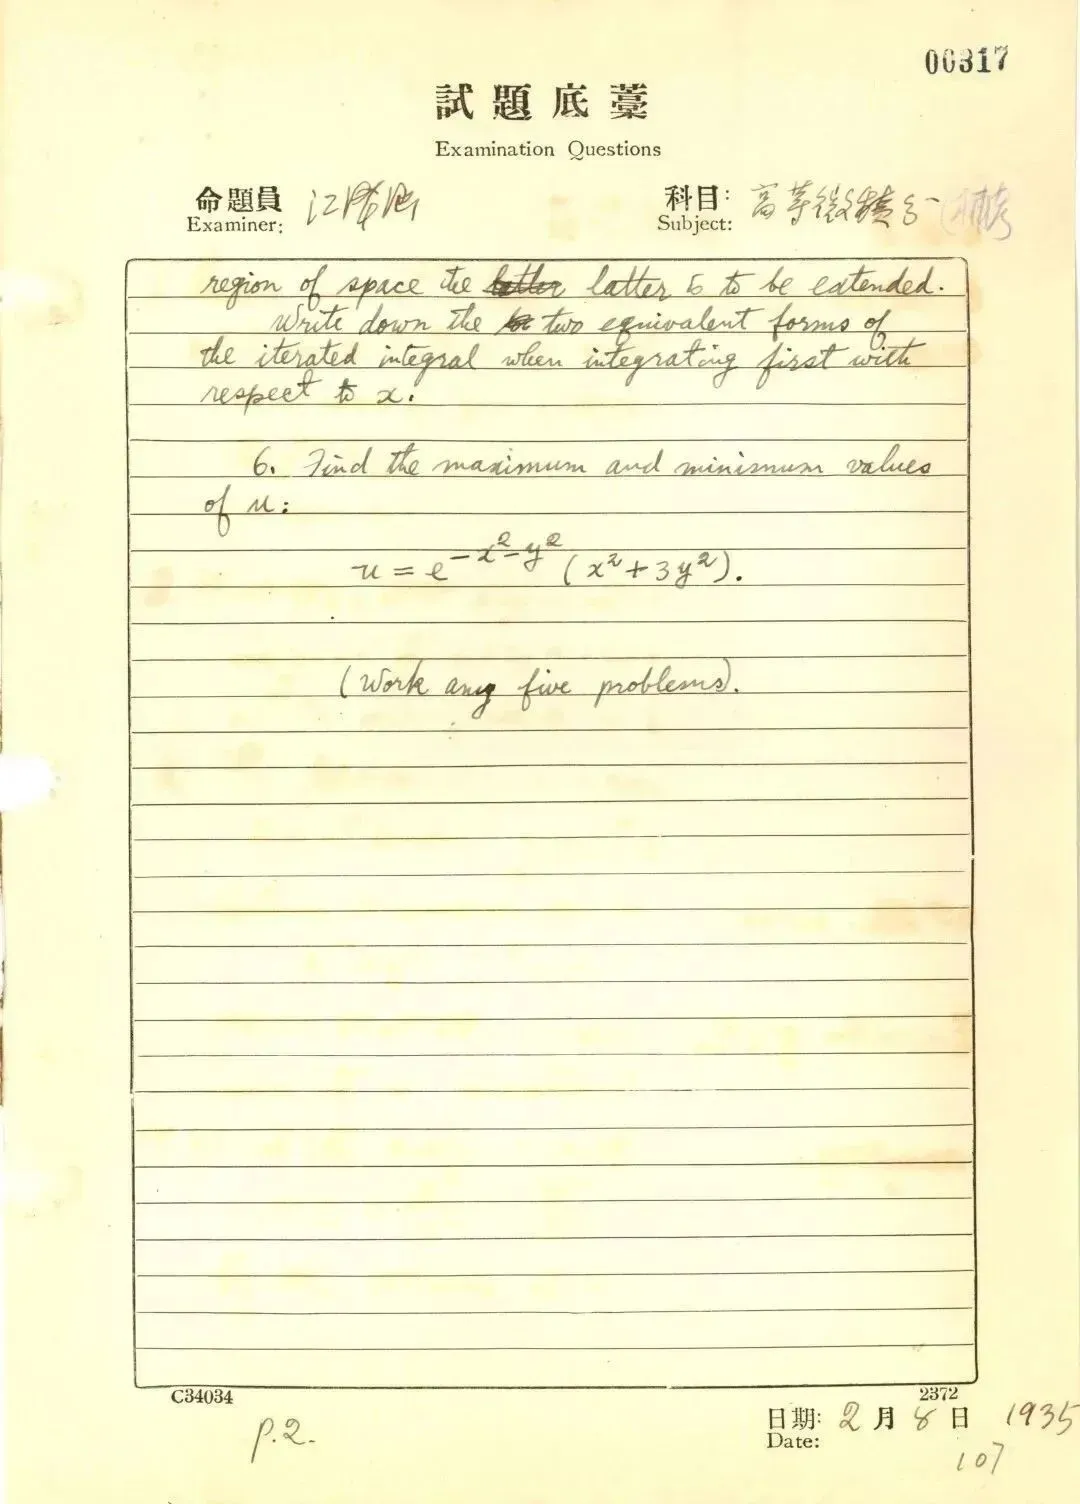 00317
試題底藁
Examination Questions
命題員 江澤涵
Examiner:
科目: 高等微積分 (補考
Subject:
region of space the latter is to be extended.
Write down the two equivalent forms of
the iterated integral when integrating first with
respect to x.
6. Find the maximum and minimum values
of u:
u = e^{-x²-y²} (x²+3y²).
(Work any five problems).
C34034
2372
p.2.
日期: 2月8日 1935
Date:
107